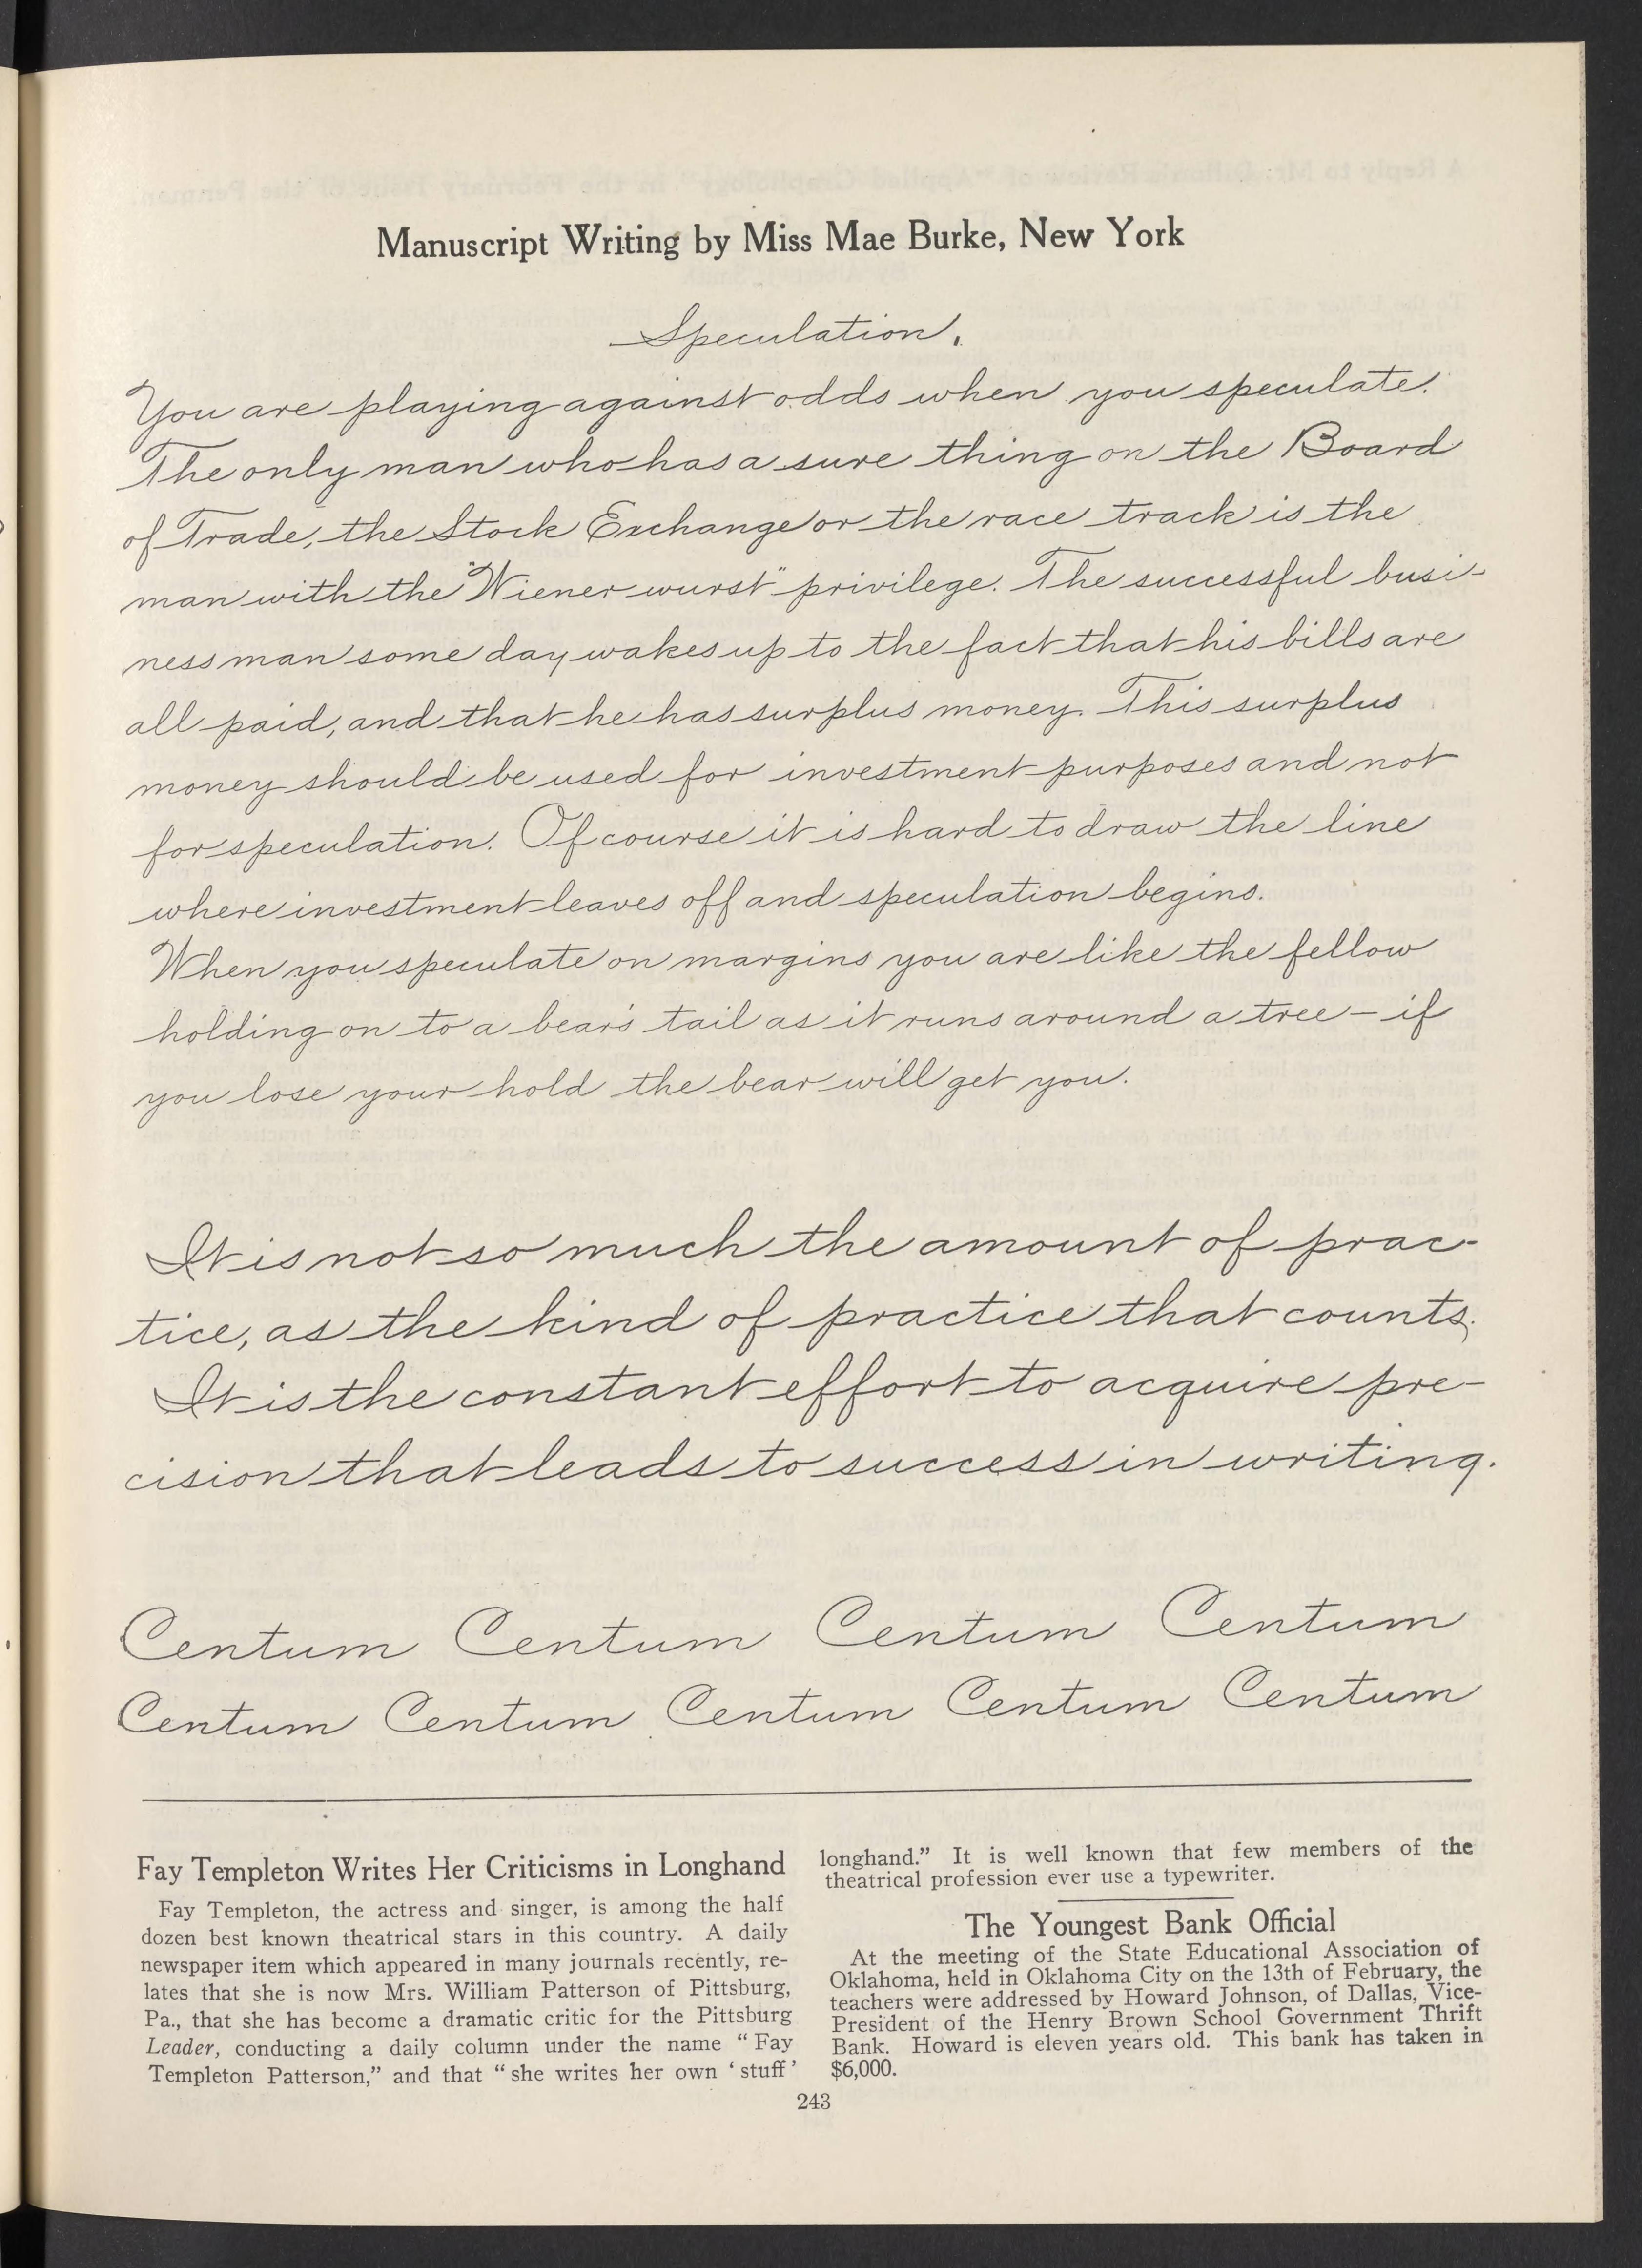 Manuscript Writing by Miss Mae Burke, New York
Speculation.
You are playing against odds when you speculate.
The only man who has a sure thing on the Board
of Trade, the Stock Exchange or the race track is the
man with the "Wiener wurst" privilege. The successful busi-
ness man some day wakes up to the fact that his bills are
all paid, and that he has surplus money. This surplus
money should be used for investment purposes and not
for speculation. Of course it is hard to draw the line
where investment leaves off and speculation begins.
When you speculate on margins you are like the fellow
holding on to a bear's tail as it runs around a tree – if
you lose your hold the bear will get you.
It is not so much the amount of prac-
tice, as the kind of practice that counts.
It is the constant effort to acquire pre-
cision that leads to success in writing.
Centum Centum Centum Centum
Centum Centum Centum Centum Centum
Fay Templeton Writes Her Criticisms in Longhand
Fay Templeton, the actress and singer, is among the half
dozen best known theatrical stars in this country. A daily
newspaper item which appeared in many journals recently, re-
lates that she is now Mrs. William Patterson of Pittsburg,
Pa., that she has become a dramatic critic for the Pittsburg
Leader, conducting a daily column under the name "Fay
Templeton Patterson," and that "she writes her own 'stuff'
longhand." It is well known that few members of the
theatrical profession ever use a typewriter.
The Youngest Bank Official
At the meeting of the State Educational Association of
Oklahoma, held in Oklahoma City on the 13th of February, the
teachers were addressed by Howard Johnson, of Dallas, Vice-
President of the Henry Brown School Government Thrift
Bank. Howard is eleven years old. This bank has taken in
$6,000.
243